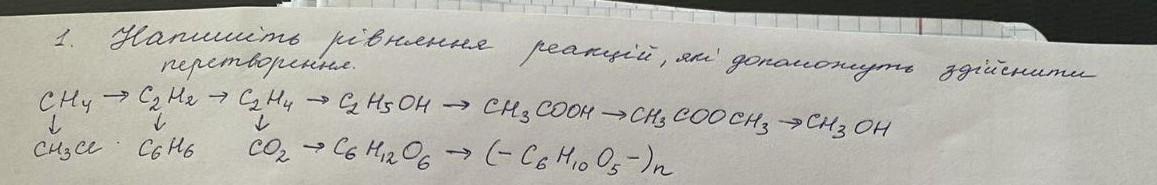 1. Напишіть рівняння реакцій, які допоможуть здійснити
перетворення.
CH₄ → C₂H₂ → C₂H₄ → C₂H₅OH → CH₃COOH → CH₃COOCH₃ → CH₃OH
↓ ↓ ↓
CH₃Cl C₆H₆ CO₂ → C₆H₁₂O₆ → (-C₆H₁₀O₅-)n